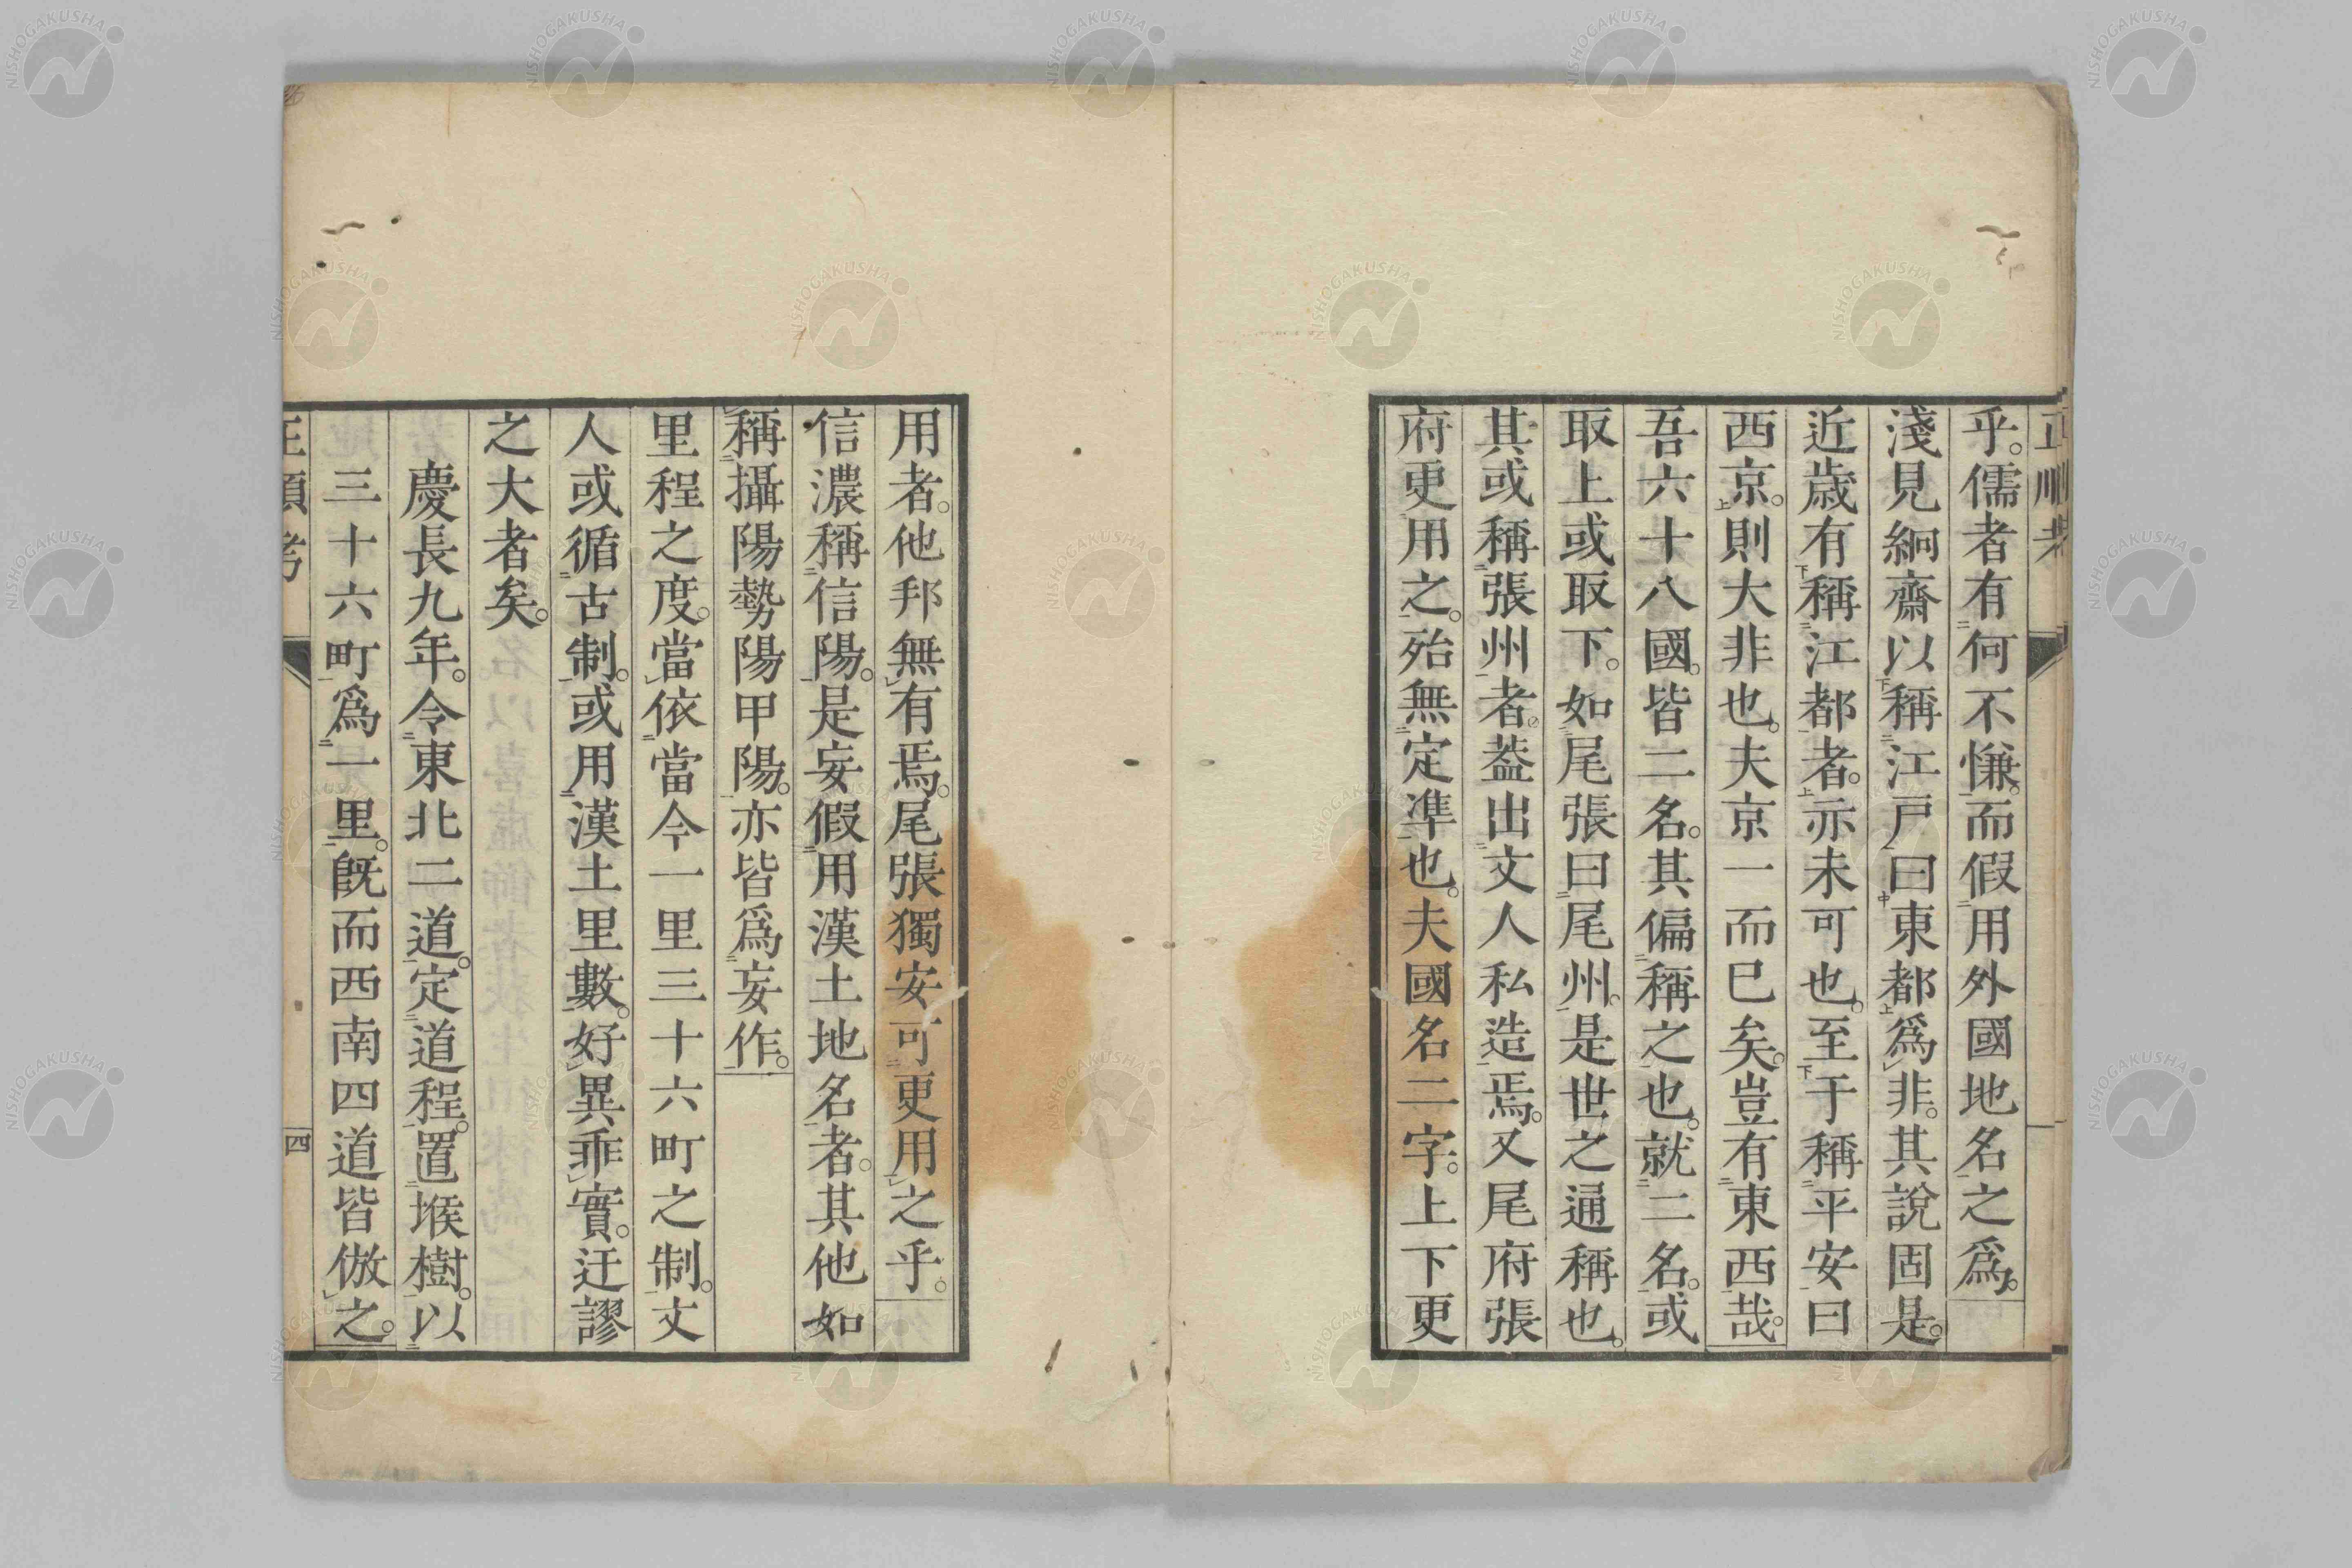 乎。儒者有何不慊。而假用外國地名之爲。
淺見絅齋以稱江戸曰東都爲非。其說固是。
近歲有稱江都者。亦未可也。至于稱平安曰
西京。則大非也。夫京一而已矣。豈有東西哉。
吾六十八國。皆二名。其偏稱之也。就二名。或
取上或取下。如尾張曰尾州。是世之通稱也。
其或稱張州者。葢出文人私造焉。又尾府張
府更用之。殆無定準也。夫國名二字。上下更
用者。他邦無有焉。尾張獨安可更用之乎。
信濃稱信陽。是妄假用漢土地名者。其他如
稱攝陽勢陽甲陽。亦皆爲妄作。
里程之度。當依當今一里三十六町之制。文
人或循古制。或用漢土里數。好異乖實。迂謬
之大者矣。
慶長九年。令東北二道。定道程。置堠樹。以
三十六町爲一里。旣而西南四道皆倣之。
四
NISHOGAKUSHA